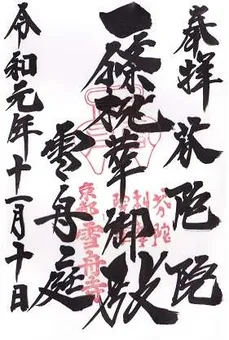 奉拝 芬陀院
一條桃華御殿
雪舟庭
令和元年十一月十日
京都 雪舟寺